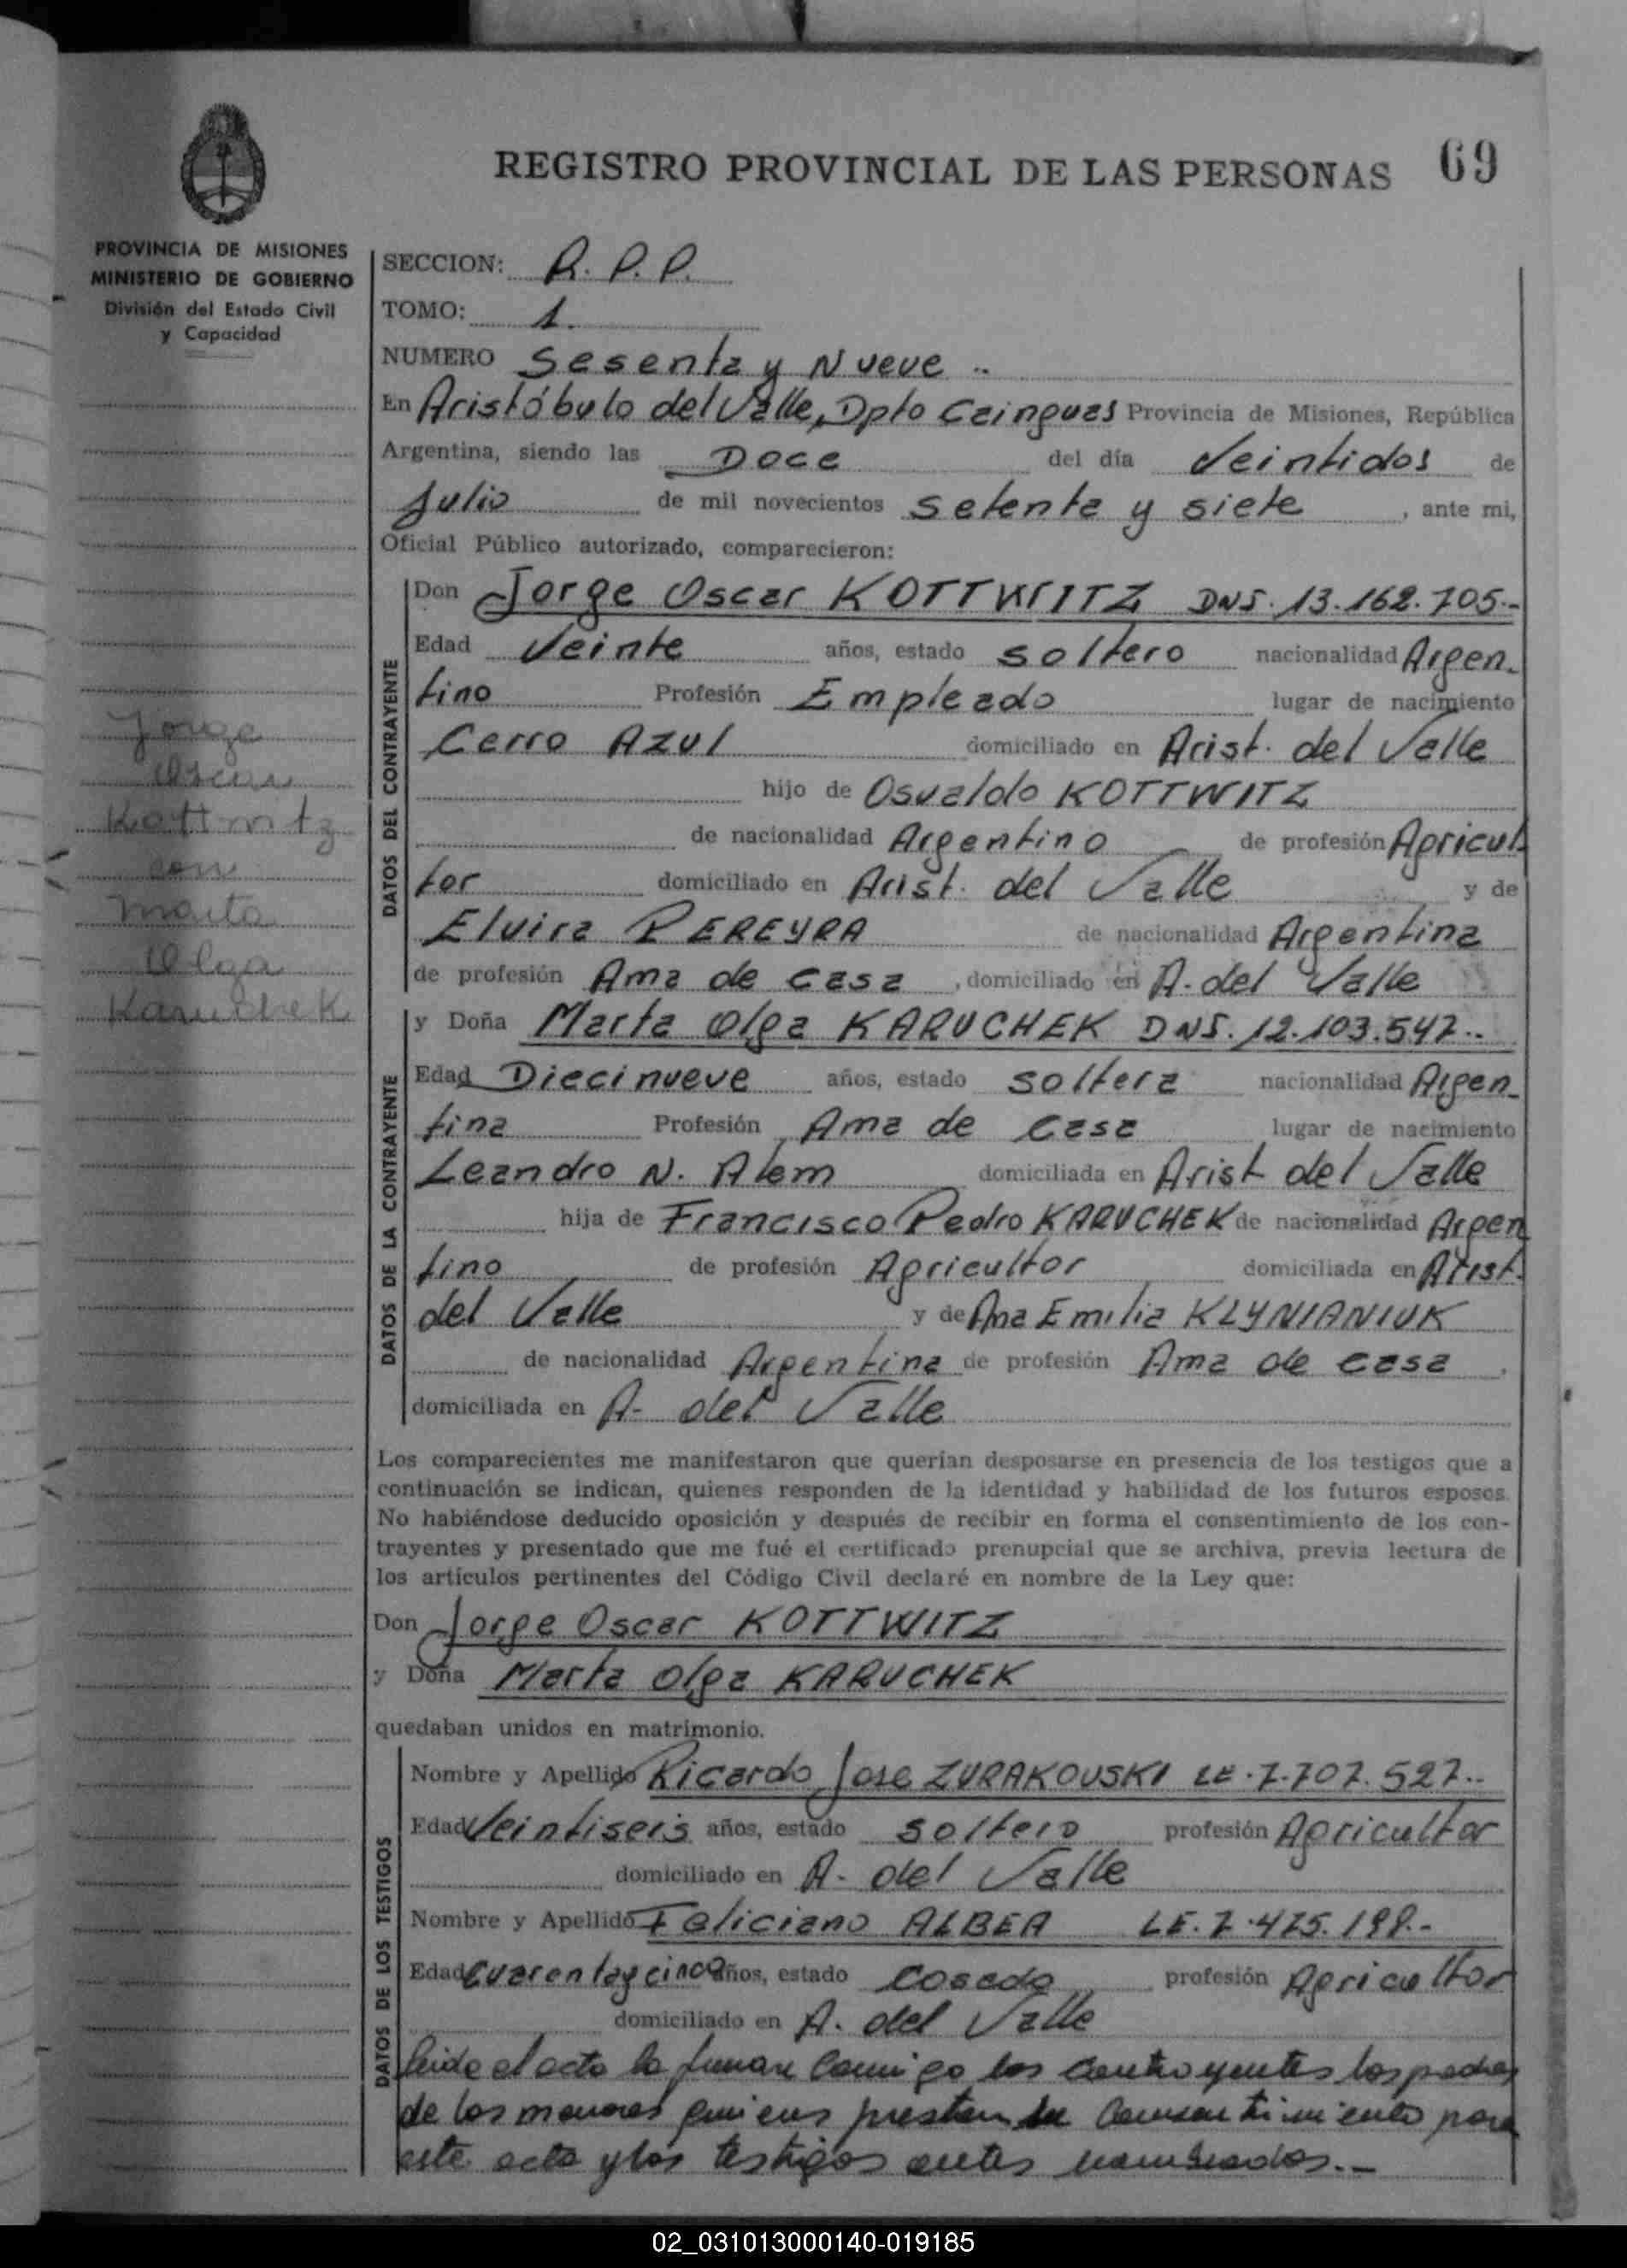 REGISTRO PROVINCIAL DE LAS PERSONAS 69
PROVINCIA DE MISIONES
MINISTERIO DE GOBIERNO
División del Estado Civil
y Capacidad
SECCION: R. P. P.
TOMO: 1.
NUMERO Sesenta y Nueve ..
En Aristóbulo del Valle, Dpto Cainguas Provincia de Misiones, República
Argentina, siendo las Doce del día Veintidos de
Julio de mil novecientos setenta y siete, ante mi,
Oficial Público autorizado, comparecieron:
DATOS DEL CONTRAYENTE
Don Jorge Oscar KOTTWITZ DNI. 13.162.705.-
Edad Veinte años, estado soltero nacionalidad Argen-
tino Profesión Empleado lugar de nacimiento
Cerro Azul domiciliado en Arist. del Valle
hijo de Osvaldo KOTTWITZ
de nacionalidad Argentino de profesión Agricul-
tor domiciliado en Arist. del Valle y de
Elvira PEREYRA de nacionalidad Argentina
de profesión Ama de casa, domiciliado en A. del Valle
Jorge
Oscar
Kottwitz
con
Marta
Olga
Karuchek
DATOS DE LA CONTRAYENTE
y Doña Marta Olga KARUCHEK DNI. 12.103.547..
Edad Diecinueve años, estado soltera nacionalidad Argen-
tina Profesión Ama de Casa lugar de nacimiento
Leandro N. Alem domiciliada en Arist del Valle
hija de Francisco Pedro KARUCHEK de nacionalidad Argen
tino de profesión Agricultor domiciliada en Arist.
del Valle y de Ana Emilia KLYNIANIUK
de nacionalidad Argentina de profesión Ama de casa.
domiciliada en A. del Valle
Los comparecientes me manifestaron que querían desposarse en presencia de los testigos que a
continuación se indican, quienes responden de la identidad y habilidad de los futuros esposos.
No habiéndose deducido oposición y después de recibir en forma el consentimiento de los con-
trayentes y presentado que me fué el certificado prenupcial que se archiva, previa lectura de
los artículos pertinentes del Código Civil declaré en nombre de la Ley que:
Don Jorge Oscar KOTTWITZ
y Doña Marta Olga KARUCHEK
quedaban unidos en matrimonio.
DATOS DE LOS TESTIGOS
Nombre y Apellido Ricardo Jose ZURAKOUSKI LE.7.707.527..
Edad Veintiseis años, estado soltero profesión Agricultor
domiciliado en A. del Valle
Nombre y Apellido Feliciano ALBEA LE.7.475.199.-
Edad Cuarenta y cinco años, estado Cosado profesión Agricultor
domiciliado en A. del Valle
leida el acta la firman conmigo los contrayentes los padres
de los menores quienes prestan su consentimiento para
este acto y los testigos antes nombrados.-
02_031013000140-019185